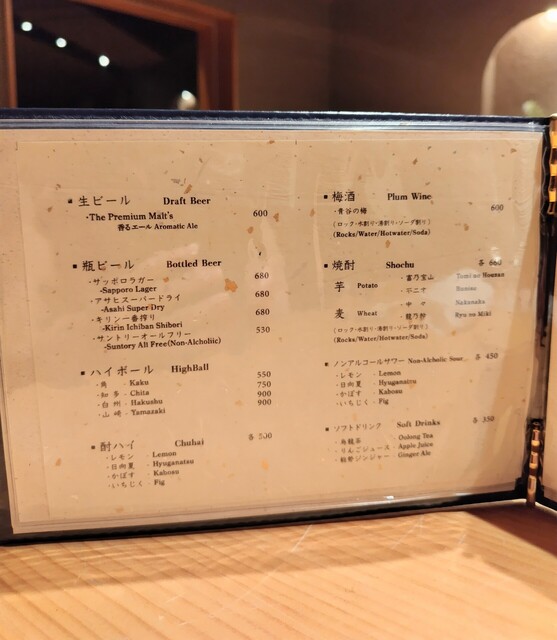 ■生ビール Draft Beer
・The Premium Malt's 600
香るエール Aromatic Ale
■瓶ビール Bottled Beer
・サッポロラガー 680
-Sapporo Lager
・アサヒスーパードライ 680
-Asahi Super Dry
・キリン一番搾り 680
-Kirin Ichiban Shibori
・サントリーオールフリー 530
-Suntory All Free(Non-Alcholiic)
■ハイボール HighBall
・角 - Kaku 550
・知多 - Chita 750
・白州 - Hakushu 900
・山崎 - Yamazaki 900
■酎ハイ Chuhai 各500
・レモン - Lemon
・日向夏 - Hyuganatsu
・かぼす - Kabosu
・いちじく - Fig
■梅酒 Plum Wine
・青谷の梅 600
(ロック・水割り・湯割り・ソーダ割り)
(Rocks/Water/Hotwater/Soda)
■焼酎 Shochu 各660
芋 Potato ・富乃宝山 Tomi no Houzan
・不二才
麦 Wheat ・中々 Nakanaka
(ロック・水割り・湯割り・ソーダ割り)
(Rocks/Water/Hotwater/Soda)
■ノンアルコールサワー Non-Alcholic Sour 各450
・レモン - Lemon
・日向夏 - Hyuganatsu
・かぼす - Kabosu
・いちじく - Fig
■ソフトドリンク Soft Drinks 各350
・烏龍茶 - Oolong Tea
・りんごジュース - Apple Juice
・能勢ジンジャー - Ginger Ale